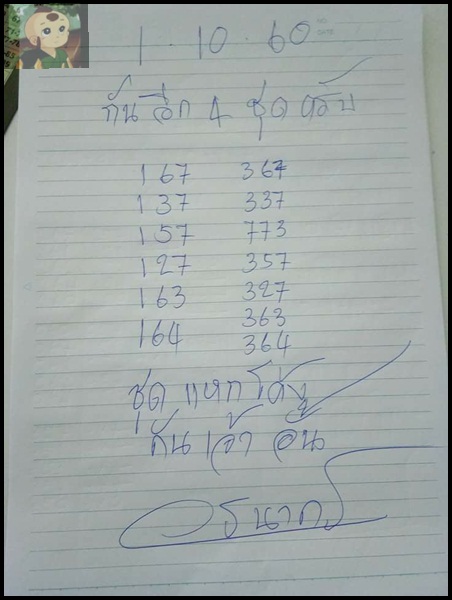 NO.
DATE
1 . 10 . 60
กันอีก 4 ชุด ครับ
167 367
137 337
157 773
127 357
163 327
363
164 364
ชุด แหกโค้ง
กัน เจ้า อั้น